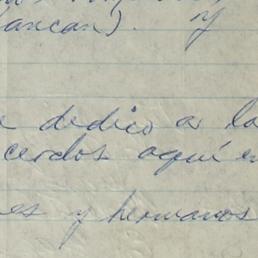 cancan). y
dedico a la
cerdos aquí en
es y hermanos